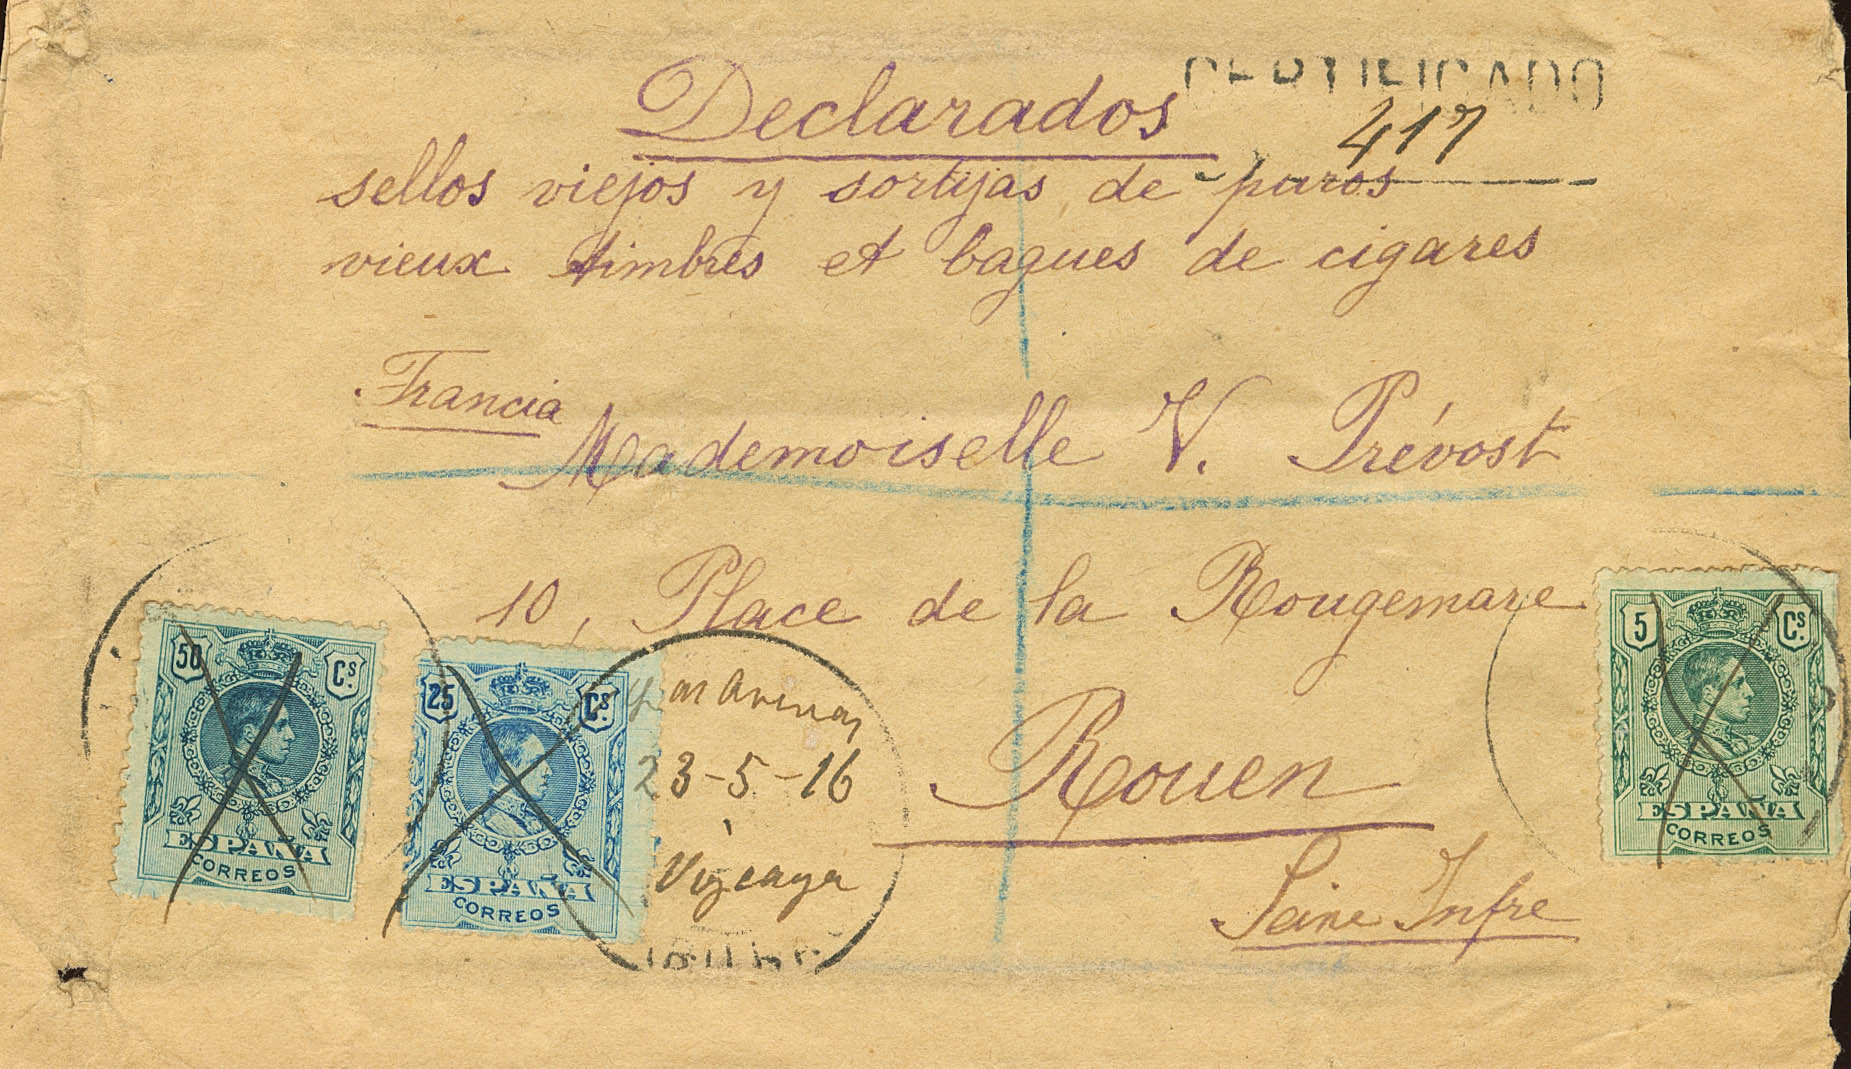 CERTIFICADO
417
Declarados
sellos viejos y sortijas de puros
vieux timbres et bagues de cigares
Francia
Mademoiselle V. Prévost
10, Place de la Rougemare
Rouen
Seine Infre
50 Cs.
ESPAÑA
CORREOS
25 Cs.
ESPAÑA
CORREOS
23-5-16
Vizcaya
5 Cs.
ESPAÑA
CORREOS